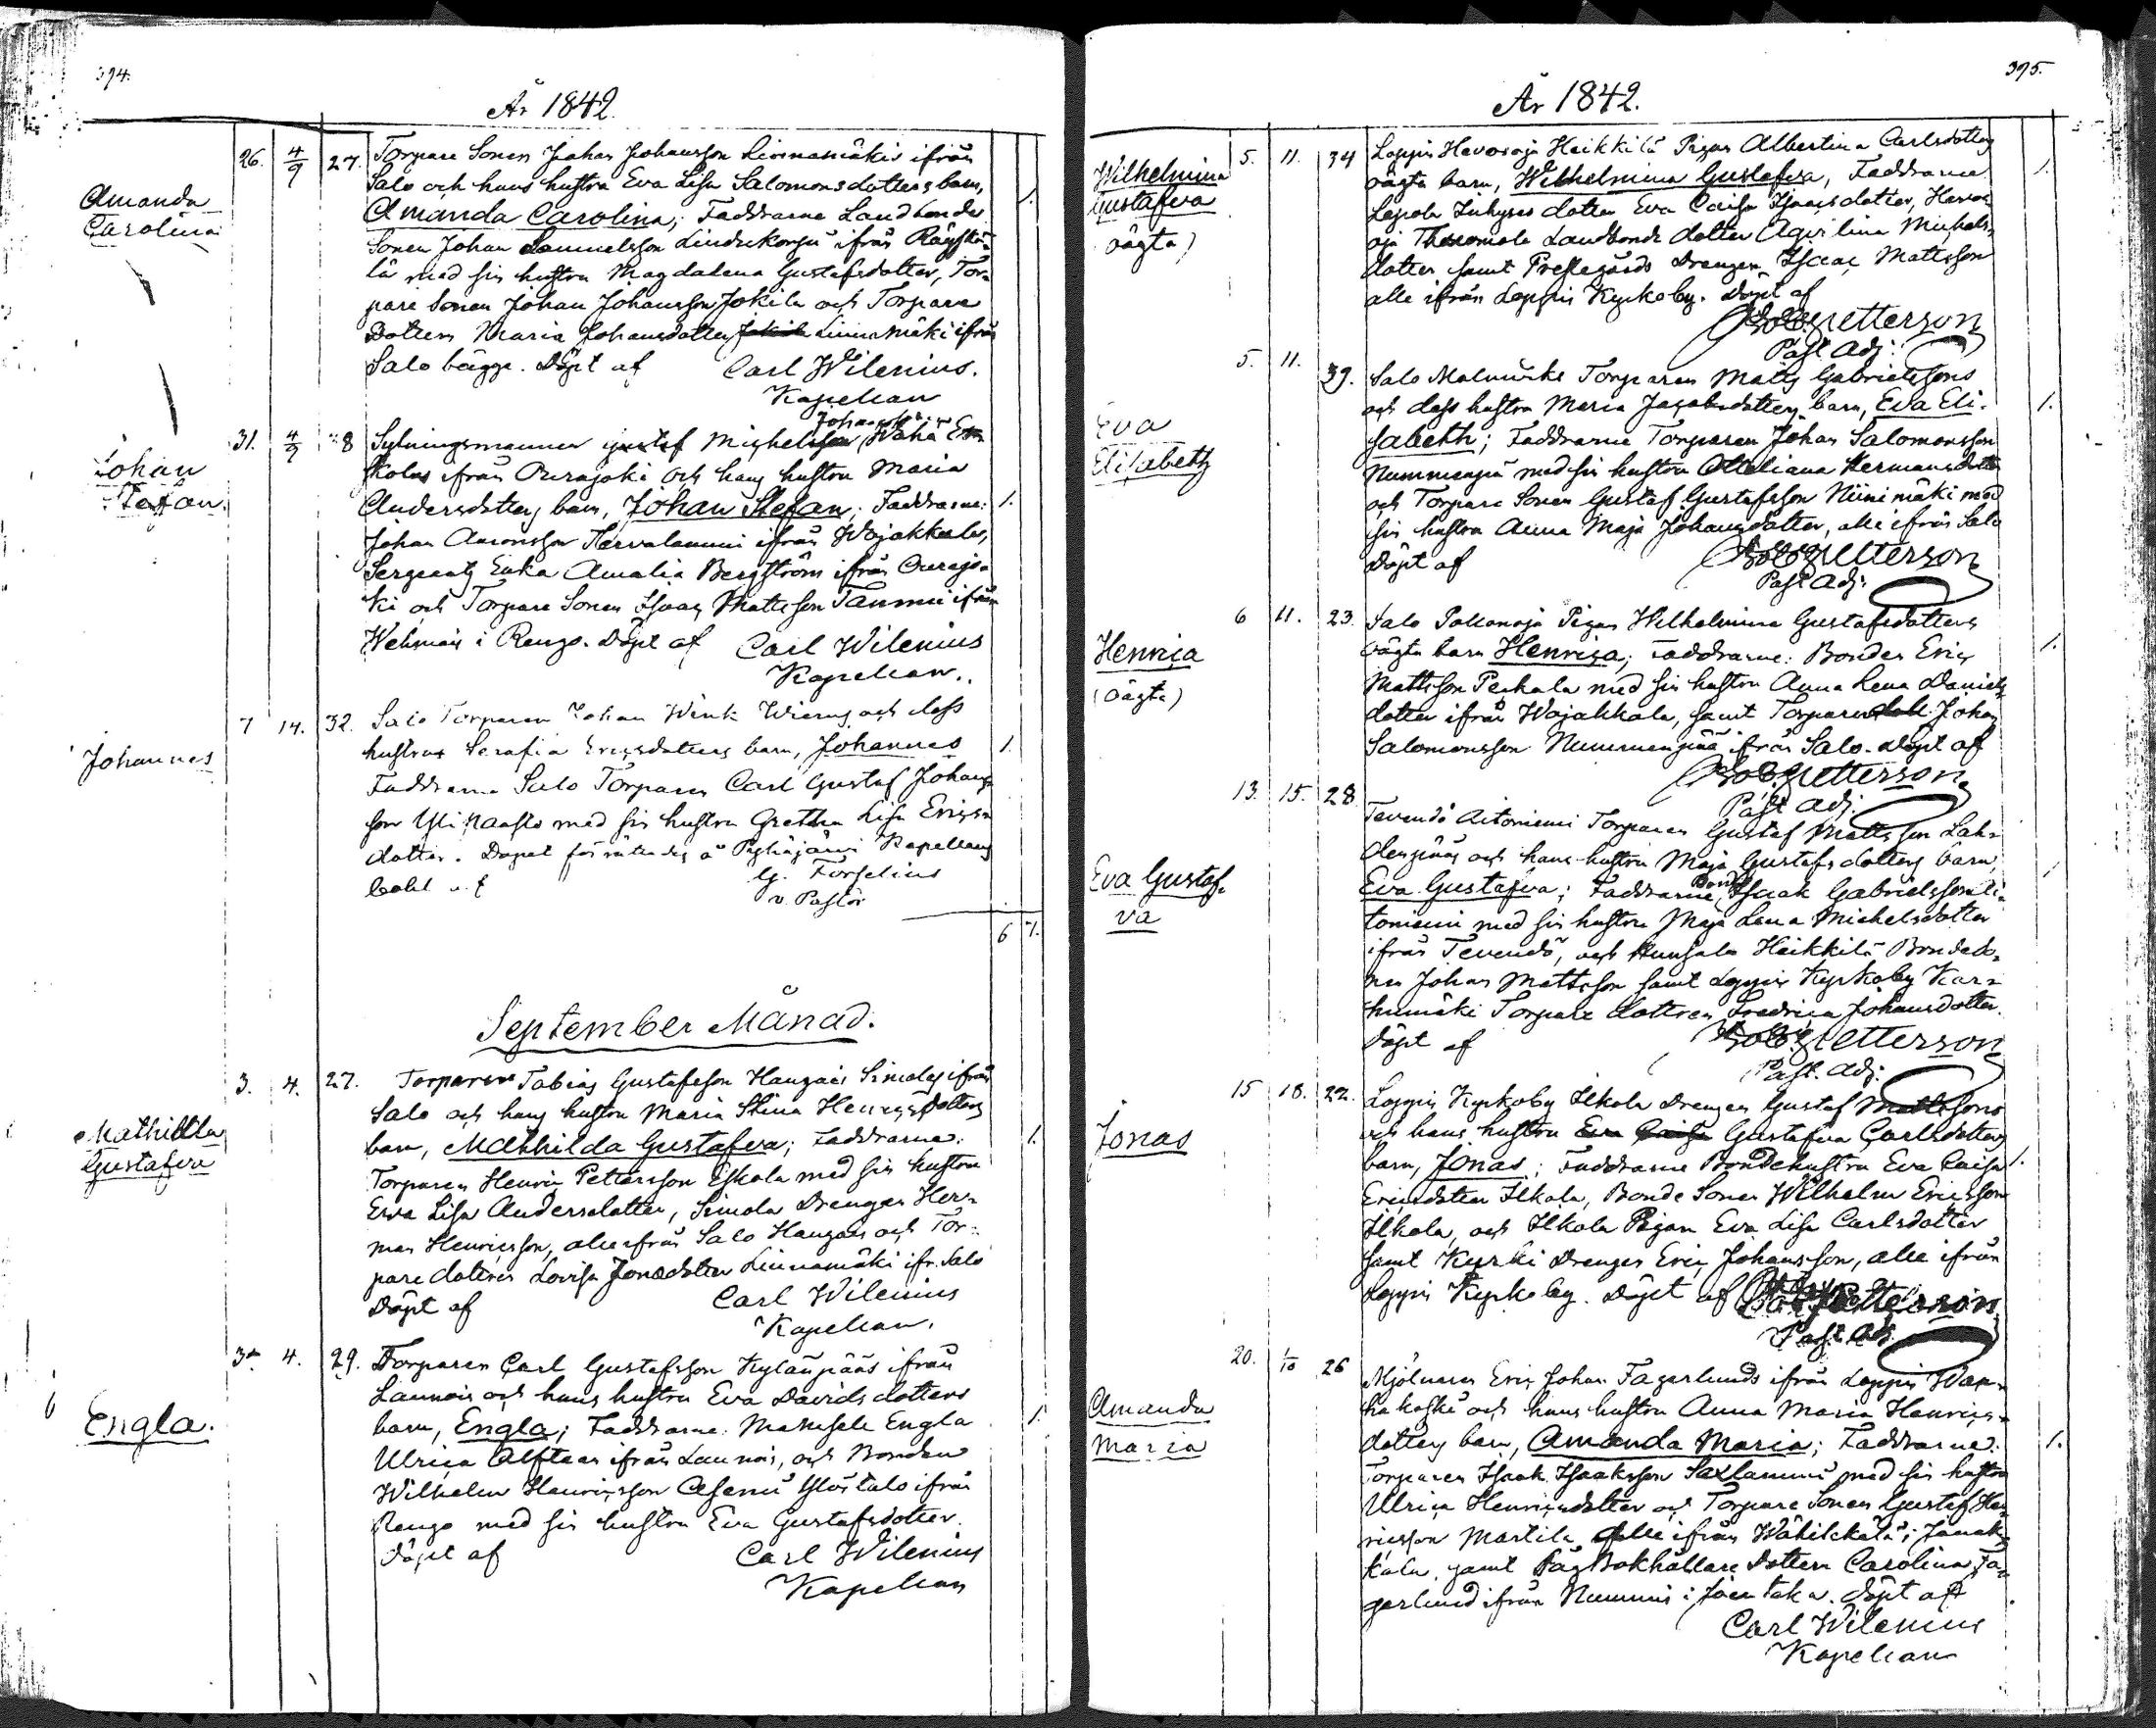 394.
År 1842.
Amanda
Carolina
26. 4/9 27. Torpare Sonen Johan Johansson Linnamäkis ifrån
Salo och hans hustru Eva Lisa Salomonsdotters barn,
Amanda Carolina; Faddrarne Landbonde 1.
Sonen Johan Samuelsson ifrån Räyskä-
lä med sin hustru Magdalena Gustafsdotter, Tor-
pare Sonen Johan Johansson Jokila och Torpare
Dottern Maria Johansdotter Linnamäki ifrån
Salo bägge. Döpt af Carl Wilenius.
Kapellan
Johan
Stefan.
31. 4/9 28 Sytningsmannen Michelsson Wähä Es-
kolas ifrån Ourajoki och hans hustru Maria
Andersdotters barn, Johan Stefan; Faddrarne: 1.
Johan Aaronsson Tervalammi ifrån Wojakkala,
Sergeants Enka Amalia Bergström ifrån Ourajo-
ki och Torpare Sonen Isaac Mattsson Tammi ifrån
Wehmais i Rengo. Döpt af Carl Wilenius
Kapellan.
Johannes
7 14. 32. Salo Torparen Johan Wink och dess
hustrus Serafia Ericsdotters barn, Johannes 1.
Faddrarne Salo Torparen Carl Gustaf Johans-
son med sin hustru Gretha Lisa Erics-
dotter. Dopet förrättades å Pyhäjärvi Kapellans
bohl af G. Forselius
v. Pastor
6 7.
September Månad.
Mathilda
Gustafva
3. 4. 27. Torparen Tobias Gustafsson Hangais Simolas ifrån
Salo och hans hustru Maria Stina Henricsdotters
barn, Mathilda Gustafva; Faddrarne: 1.
Torparen Henric Pettersson Eskola med sin hustru
Eva Lisa Andersdotter, Simola Drengen Her-
man Henricsson, alla ifrån Salo Hangais och Tor-
pare dottren Lovisa Jonædotter Linnamäki ifr. Salo
Döpt af Carl Wilenius
Kapellan.
Engla.
3 4. 29. Torparen Carl Gustafsson Kylänpääs ifrån
Launois och hans hustru Eva Davidsdotters
barn, Engla; Faddrarne: Mamsell Engla 1.
Ulrica Alftan ifrån Launois, och Bonden
Wilhelm Henricsson ifrån
Rengo med sin hustru Eva Gustafsdotter.
Döpt af Carl Wilenius
Kapellan
395.
År 1842.
Wilhelmina
Gustafva
oägta)
5. 11. 34 Loppis Hevosoja Heikkilä Pigan Albertina Carlsdotters
oägta barn, Wilhelmina Gustafva, Faddrarne 1.
Inhyses dotter Eva Caisa Isaacsdotter, Hevos-
oja Landbonde dotter Michels-
dotter samt Prestegårds Drengen Isaac Mattsson
alle ifrån Loppis Kyrkoby. Döpt af
Petterson
Past. Adj.
Eva
Elisabeth
5. 11. 39. Salo Torparen Matts Gabrielssons
och dess hustru Maria Jacobsdotters barn, Eva Eli- 1.
sabeth; Faddrarne Torparen Johan Salomonsson
Nummenpää med sin hustru Ottiliana Hermansdotter
och Torpare Sonen Gustaf Gustafsson Niinimäki med
sin hustru Anna Maja Johansdotter, alle ifrån Salo
Döpt af Petterson
Past. Adj.
Henrica
(oägta)
6 11. 23. Salo Pigan Wilhelmina Gustafsdotters
oägta barn Henrica; Faddrarne: Bonden Eric 1.
Mattsson Perkala med sin hustru Anna Lena Daniels-
dotter ifrån Wojakkala, samt Torparen Johan
Salomonsson Nummenpää ifrån Salo. Döpt af
Petterson
Past. Adj.
Eva Gustaf-
va
13. 15. 28 Tevendö Aitoniemi Torparen Gustaf Mattsson Lah-
denpääs och hans hustru Maja Gustafsdotters barn,
Eva Gustafva; Faddrarne, Bonde Isaak Gabrielsson Ai-
toniemi med sin hustru Maja Lena Michelsdotter
ifrån Tevendö, och Hunsala Heikkilä Bondeso-
nen Johan Mattsson samt Loppis Kyrkoby Kar-
humäki Torpare dottren Fredrica Johansdotter.
Döpt af Petterson
Past. Adj.
Jonas
15 18. 22. Loppis Kyrkoby Ilkola Drengen Gustaf Mattssons
och hans hustru Gustafva Carlsdotters
barn, Jonas; Faddrarne Bondehustru Eva Caisa 1.
Ericsdotter Ilkola, Bonde Sonen Wilhelm Ericsson
Ilkola, och Ilkola Pigan Eva Lisa Carlsdotter
samt Kurki Drengen Eric Johansson, alle ifrån
Loppis Kyrkoby. Döpt af Petterson
Past. Adj.
Amanda
Maria
20. 1/10 26 Mjölnaren Eric Johan Fagerlunds ifrån Loppis Wan-
hakoski och hans hustru Anna Maria Henrics-
dotters barn, Amanda Maria; Faddrarne: 1.
Torparen Isaak Isaaksson Saxlammi med sin hustru
Ulrica Henricsdotter och Torpare Sonen Gustaf Hen-
ricsson Martila alle ifrån Wähikkälä i Janak-
kala, samt Bokhållare Dottern Carolina Fa-
gerlund ifrån Nummis i Döpt af
Carl Wilenius
Kapellan